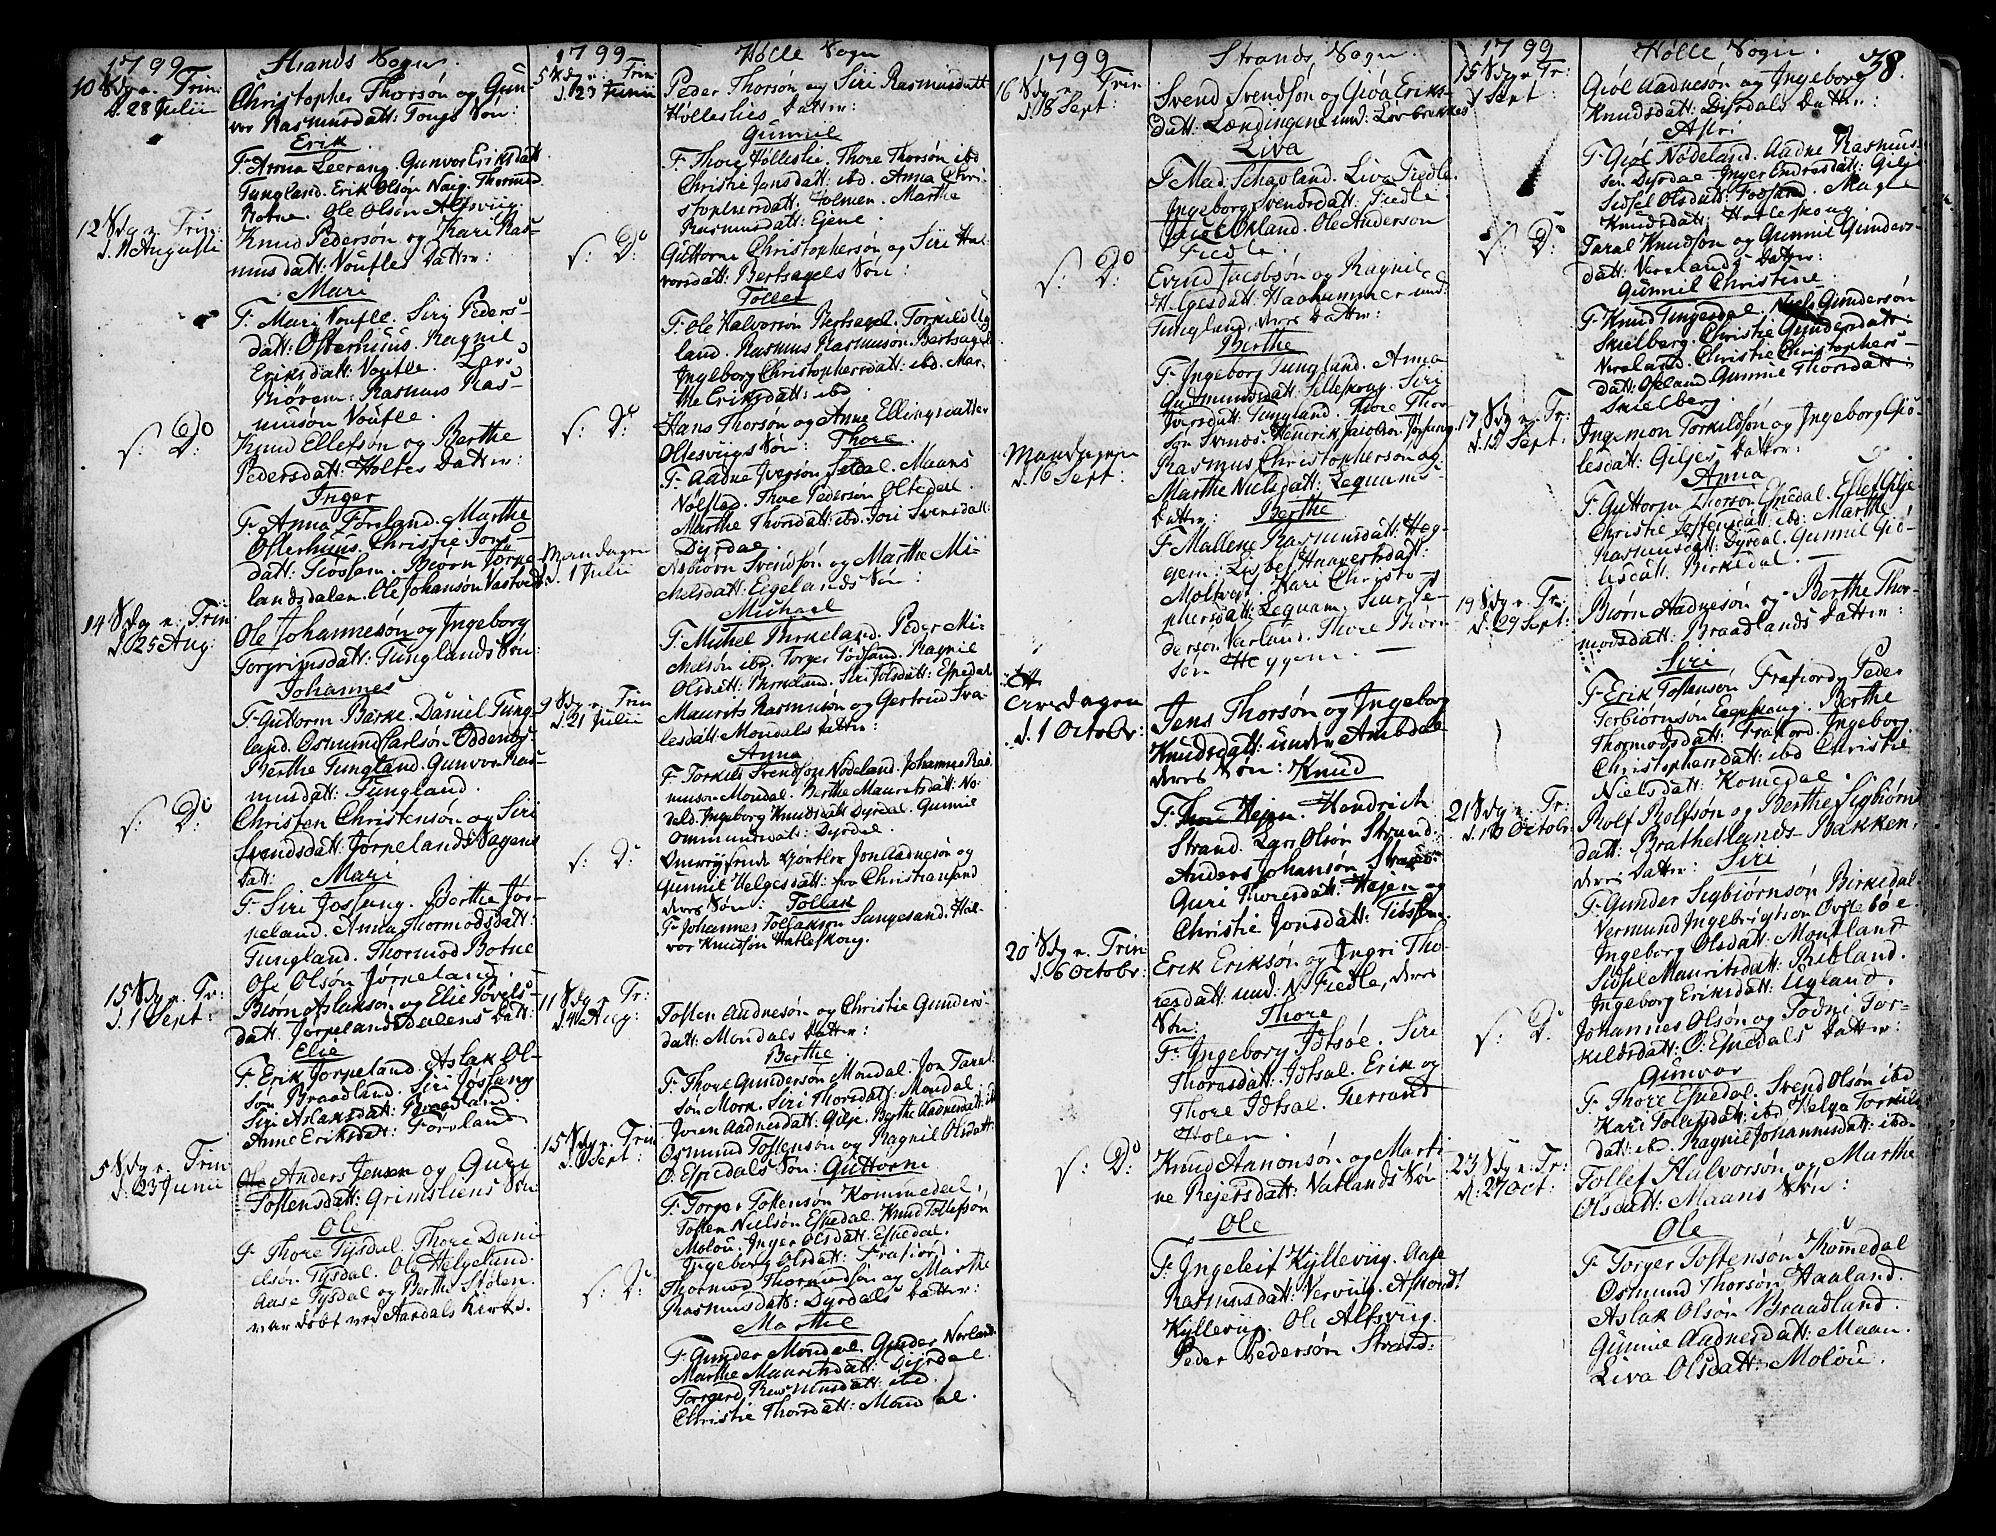 1799
Strands Sogn
10 Sdg n. Trin:
d. 28 Julii
Christopher Thorsøn og Gun-
vor Rasmusdatt: Tungl Søn:
Erik
F. Anna Leerang. Gunvor Eriksdatt
Tungland. Erik Olsøn Naig. Thormod
Botne. Ole Olsøn Alfsviig.
12 Sdg n. Trin.
d. 11 Augusti
Knud Pedersøn og Kari Ras-
musdatt: Voufles Datter:
Mari
F. Mari Voufle. Siri Peders-
datt: Osterhuus. Ragnil
Eriksdatt: Voufle. Lars
Biørem: Rasmus Ras-
musøn Voufle.
S: D:
Knud Ellefsøn og Berthe
Pedersdatt: Holtes Datter:
Inger
F. Anna Førsland. Marthe
Osterhuus. Christie Jons-
datt: Tiøssem. Biørn Jørpe
landsdalen. Ole Johansøn Vastvedt
14 Sdg n. Trin
d. 25 Aug.
Ole Johannesøn og Ingeborg
Torgrimsdatt: Tunglands Søn:
Johannes
F. Guttorm Barke. Daniel Tung-
land. Osmund Carlsøn Oddenbg
Berthe Tungland. Gunvor Ras-
musdatt: Tungland.
S: D:
Christen Christensøn og Siri
Svendsdatt: Jørpelands Sagens
Datt: Mari
F. Siri Jøssang. Berthe Jør-
peland. Anna Thormodsdatt:
Tungland. Thormod Botne
Ole Olsøn Jørpeland.
15 Sdg n. Tr:
d. 1 Sept:
Biørn Aslaksøn og Elie Tovels-
datt: Jørpelandsdalens Datt:
Elie
F. Erik Jørpeland. Aslak Ol-
søn Braadland. Siri Jøssang
Siri Aslaksdatt: Braadland
Anne Eriksdatt: Førsland
5 Sdg n. Trin
d. 23 Junii
Anders Jensen og Guri
Tostensdatt: Grimsliens Søn
Ole
F. Thore Tysdal. Thore Dani-
elsøn Tysdal. Ole Helgeland.
Aase Tysdal og Berthe Stølen.
var døbt ved Aardals Kirke.
1799
Hølle Sogn
5 Sdg n. Trin
d. 23 Junii
Peder Thorsøn og Siri Rasmusdatt
Hølleslies Datter:
Gunnil
F. Thore Hølleslie. Thore Thorsøn ibd
Christie Jonsdatt: ibd. Anna Chri-
stophersdatt: Holmen. Marthe
Rasmusdatt: Eiene.
S: D:
Guttorm Christophersøn og Siri Hal-
vorsdatt: Bertsagels Søn:
Tollef
F. Ole Halvorsøn Bertsagel. Torkild Ug
land. Rasmus Rasmusøn Bertsagel
Ingeborg Christophersdatt: ibd. Mar-
the Eriksdatt: ibd
S: D:
Hans Thorsøn og Anne Ellingsdatter
Oltesviigs Søn: Thore.
F. Aadne Iversøn Seldal. Maans
Nølstad. Thore Pedersøn Oltedal.
Marthe Thorsdatt: ibd. Jori Svensdatt:
Dyrdae.
Mandagen
d. 1 Julii
Asbiørn Svendsøn og Marthe Mi-
kelsdatt: Eigelands Søn:
Michael
F. Michel Thræland. Peder Mi-
kelsøn ibd. Torger Fodsand. Ragnil
Olsdatt: Birkeland. Siri Jolsdatt: Espedal
9 Sdg n. Trin
d. 21 Julii
Maurits Rasmusøn og Gertrud Sva-
lesdatt: Mondals Datter:
Anna
F. Torkild Svendsøn Nodeland. Johannes Ras-
musøn Mondal. Berthe Mauritsdatt: No-
deld. Ingeborg Knudsdatt Dyrdal. Gunnil
Ommundsdatt: Dyrdal.
S: D:
Omreysende Giørtler Jon Aadnesøn og
Gunnil Helgesdatt: fra Christiansand
deres Søn: Tollak
F. Johannes Tollaksøn Sangesand. Hal-
vor Knudsøn Hatleskong.
11 Sdg n. Tr:
d. 4 Aug:
Tosten Aadnesøn og Christie Gunders-
datt: Mondals Datter:
Berthe
F. Thore Gundersøn Mondal. Jon Taral-
søn Mork. Siri Thorsdatt: Mondal
Joren Aadnesdatt: Gilje. Berthe Aadnesdatt: ibd
15 Sdg n. Trin
d. 1 Sept:
Osmund Tostensøn og Ragnil Olsdatt:
Ø. Espedals Søn: Guttorm
F. Torger Tostensøn Kommedal.
Tosten Nielsøn Espedal. Knud Tollefsøn
Molou. Inger Olsdatt: Espedal.
Ingeborg Olsdatt: Frafiord.
S: D:
Thormod Thormodsøn og Marthe
Rasmusdatt: Dyrdals Datter:
Marthe
F. Gunder Mondal. Gunder Norland.
Marthe Mauritsdatt: Dyrdal.
Torgerd Rasmusdatt: ibd.
Christie Thorsdatt: Mondal.
1799
Strands Sogn.
16 Sdg n. Trin
d. 8 Sept:
Svend Svendsøn og Giøa Eriks-
datt: Lændingene und: Løvbrekkes
Liva
F. Mad: Schavland. Liva Fiedle.
Ingeborg Svendsdatt: Fiedle.
Jacob Økland. Ole Anderson
Fiedle.
S: D:
Evind Jacobsøn og Ragnil
Helgesdatt: Haahammer und:
Tungland, deres Datter:
Berthe
F. Ingeborg Tungland. Anna
Gudmundsdatt: Selleskong. Siri
Iversdatt: Tungland. Thore Thor-
søn Svends. Hendrik Jacobsen Jøssang
Mandagen
d. 16 Sept:
Rasmus Christophersøn og
Marthe Nielsdatt: Lequams-
Datter: Berthe
F. Mallene Rasmusdatt: Heg-
gem. Lisbet Haaversdatt:
Moltvet. Kari Christo-
phersdatt: Lequam. Siur Pe-
dersøn Varland. Thore Biørn-
søn Heggem. —
Tirsdagen
d. 1 Octobr:
Jens Thorsøn og Ingeborg
Knudsdatt: under Ambdal
deres Søn: Knud
F. Thore Hejen. Hendrich
Strand. Lars Olsøn Strand.
Anders Johansøn Strand.
Guri Thoresdatt: Hejen og
Christie Jonsdatt: Tiøssem.
20 Sdg n. Trin
d. 6 Octobr:
Erik Eriksøn og Ingri Tho-
resdatt: und: N. Fiedle, deres
Søn: Thore
F. Ingeborg Idtsøe. Siri
Thoresdatt: Idtsal. Erik og
Thore Idtsal. Tierrand
Holen.
S: D:
Knud Aanonsøn og Marti-
ne Rejersdatt: Vatlands Søn
Ole
F. Ingeleif Kylleviig. Aase
Rasmusdatt: Verviig. Asmond
Kyllevig. Ole Alfsviig.
Peder Pedersøn Strand:
1799
Hølle Sogn.
38.
15 Sdg n. Tr:
1 Sept
Giøl Aadnesøn og Ingeborg
Knudsdatt: Dyrdals Datter:
Astri
F. Giøl Nødeland. Aadne Rasmus-
søn Dyrdae. Inger Endresdatt: Gilje
Sidsel Olsdatt: Fodsand. Magle
Knudsdatt: Hatleskong.
S: D:
Taral Knudsøn og Gunnil Gunders-
datt: Nerelands Datter:
Gunnil Christine
F. Knud Tingesdal. Niels Gundersøn
Skielberg. Christie Gundersdatt:
Nereland. Christie Christophers-
datt: Ofeland. Gunnil Thorsdatt
Skielberg.
17 Sdg n. Tr:
d. 15 Sept:
Ingemon Torkildsøn og Ingeborg Giø-
lesdatt: Giljes Datter:
Anna
F. Guttorm Thorsøn Espedal. Ellef Gilje.
Christie Tostensdatt: ibd: Marthe
Rasmusdatt: Dyrdal. Gunnil Giø-
lesdatt: Birkedal.
19 Sdg n. Tr:
d. 29 Sept:
Biørn Aadnesøn og Berthe Thor-
modsdatt: Braadlands Datter:
Siri
F. Erik Tostensøn Frafiord. Peder
Torbiørnsøn Eegeskong. Berthe
Thormodsdatt: Frafiord. Ingeborg
Christophersdatt: ibd Christie
Nielsdatt: Komedal.
21 Sdg n. Tr:
d. 13 Octobr.
Rolf Rolfsøn og Berthe Sigbiørns
datt: Brathetlands-Bakken,
deres Datter: Siri
F. Gunder Sigbiørnsøn Birkedal
Vermund Ingebrigtsøn Øvrebøe.
Ingeborg Olsdatt: Mouland
Sidsel Mauritsdatt: Ribland.
Ingeborg Eriksdatt: Ugland.
S: D:
Johannes Olsøn og Todni Tor-
kildsdatt: Ø. Espedals Datter:
Gunvor
F. Thore Espedal. Svend Olsøn ibd
Kari Tollefsdatt: ibd Helga Torkils
datt: ibd. Ragnil Johannesdatt: ibd.
23 Sdg n. Tr:
d: 27 Oct:
Tollef Halvorsøn og Marthe
Olsdatt: Maans Søn:
Ole
F. Torger Tostensøn Komedal
Osmund Thorsøn Haaland.
Aslak Olsøn Braadland.
Gunnil Aadnesdatt: Maan.
Liva Olsdatt: Molou.